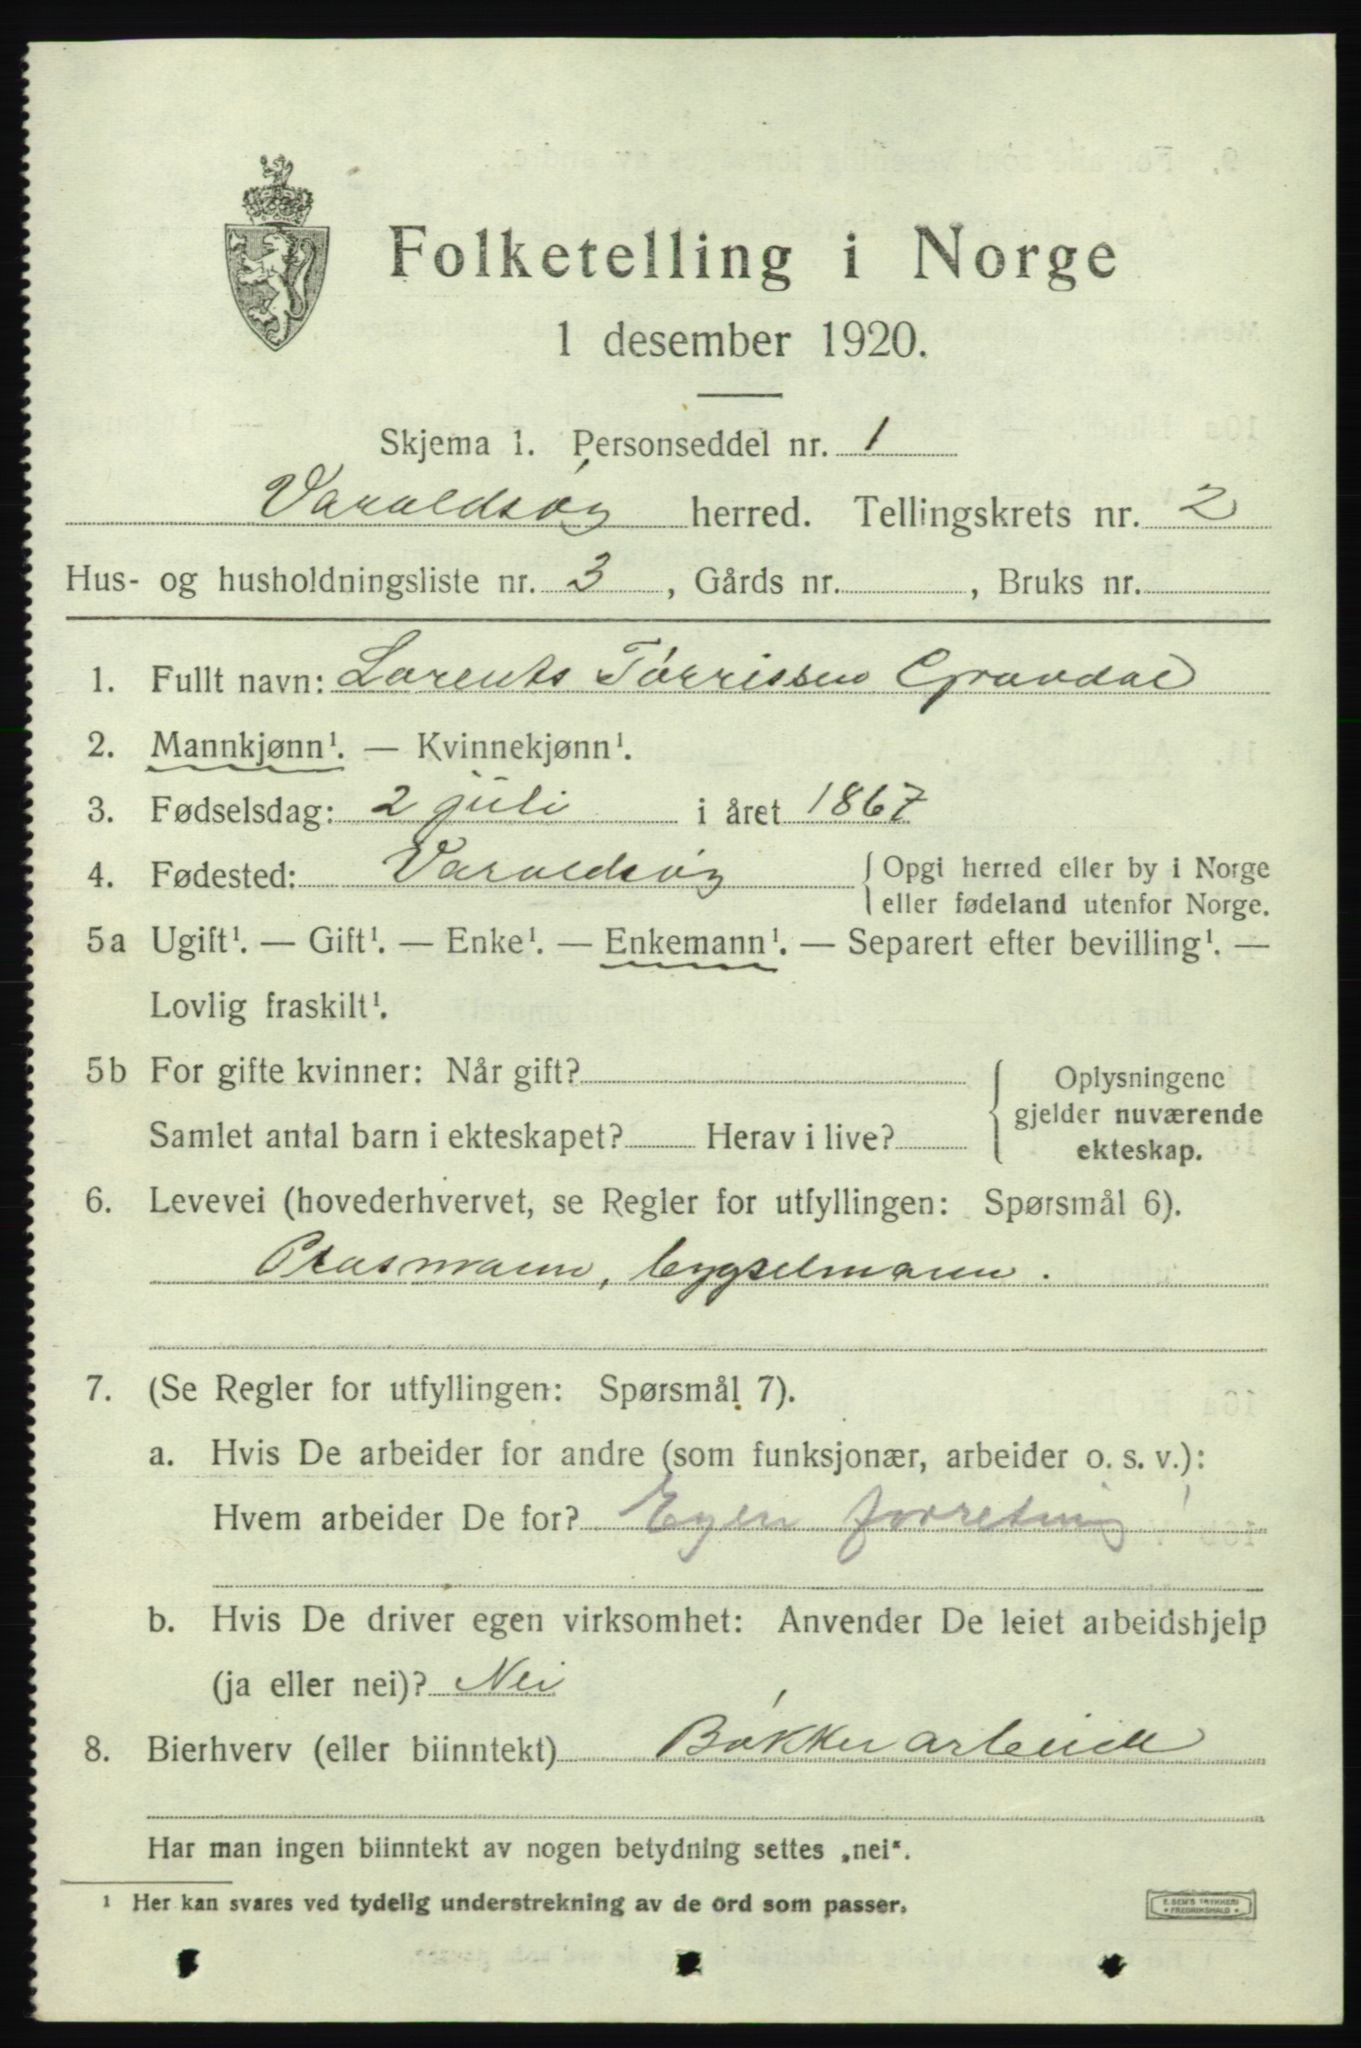 Folketelling i Norge
1 desember 1920.
Skjema 1. Personseddel nr. 1
Varaldsøy herred. Tellingskrets nr. 2
Hus- og husholdningsliste nr. 3, Gårds nr. , Bruks nr.
1. Fullt navn: Lorents Tørrissen Gravdal
2. Mannkjønn¹. — Kvinnekjønn¹.
3. Fødselsdag: 2 juli i året 1867
4. Fødested: Varaldsøy { Opgi herred eller by i Norge
eller fødeland utenfor Norge.
5a Ugift¹. — Gift¹. — Enke¹. — Enkemann¹. — Separert efter bevilling¹. —
Lovlig fraskilt¹.
5b For gifte kvinner: Når gift?
Samlet antal barn i ekteskapet? Herav i live?
Oplysningene
gjelder nuværende
ekteskap.
6. Levevei (hovederhvervet, se Regler for utfyllingen: Spørsmål 6).
Plasmann, bygselmann.
7. (Se Regler for utfyllingen: Spørsmål 7).
a. Hvis De arbeider for andre (som funksjonær, arbeider o. s. v.):
Hvem arbeider De for? Egen forretning
b. Hvis De driver egen virksomhet: Anvender De leiet arbeidshjelp
(ja eller nei)? Nei
8. Bierhverv (eller biinntekt) Bøkkerarbeide
Har man ingen biinntekt av nogen betydning settes „nei“.
¹ Her kan svares ved tydelig understrekning av de ord som passer.
E. SEM'S TRYKKERI
FREDRIKSHALD